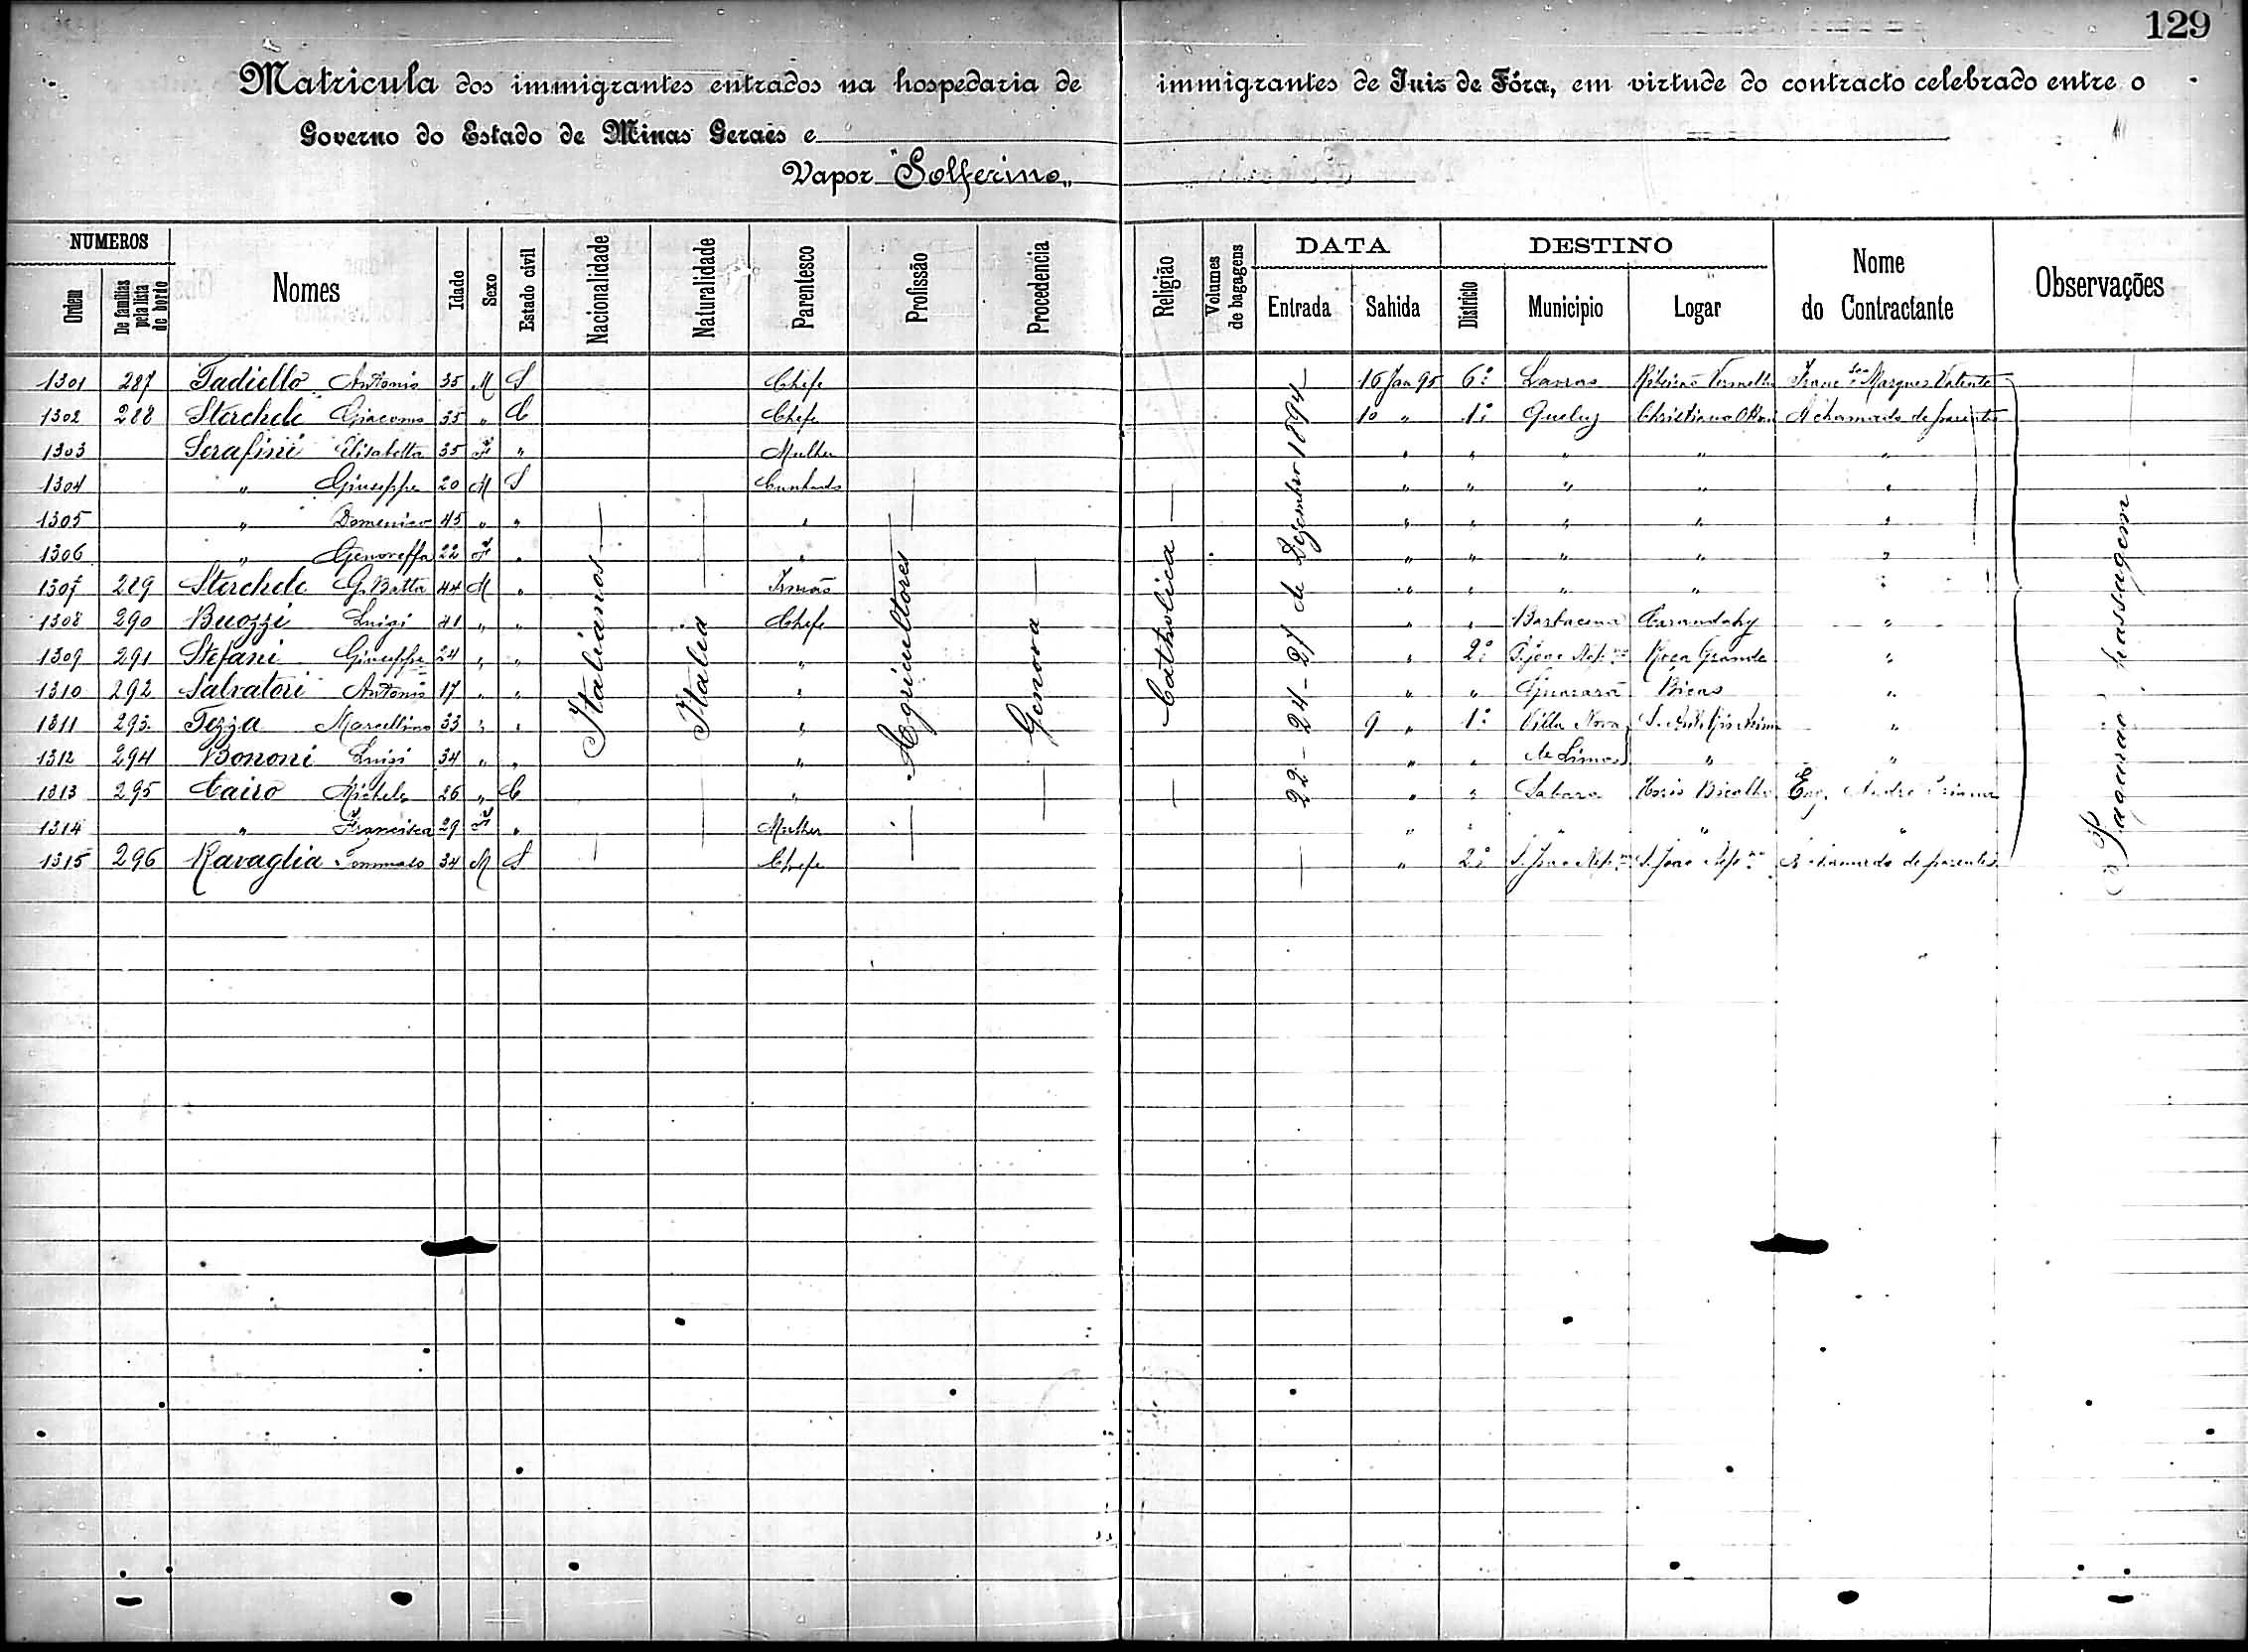 129
Matricula dos immigrantes entrados na hospedaria de immigrantes de Juiz de Fóra, em virtude do contracto celebrado entre o
Governo do Estado de Minas Geraes e
Vapor "Solferino"
NUMEROS DATA DESTINO
Ordem De familias pela lista de bordo Nomes Idade Sexo Estado civil Nacionalidade Naturalidade Parentesco Profissão Procedencia Religião Volumes de bagagens Entrada Sahida Districto Municipio Logar Nome do Contractante Observações
1301 287 Tadiello Antonio 35 M S Chefe 16 Jan 95 6º Lavras Ribeirão Vermelho Marques Valente
1302 288 Sterchele Giacomo 35 " C Chefe 10 " 1º Queluz Christiano Ottoni A chamado de parentes
1303 Serafini Elisabetta 35 F " Mulher " " " " "
1304 " Giuseppe 20 M S Cunhado " " " " "
1305 " Domenico 45 " " " " " " " "
1306 " Genoveffa 22 F " " " " " " "
1307 289 Sterchele G. Batta 44 M " Irmão " " " " "
1308 290 Buozzi Luigi 41 " " Chefe " " Barbacena Carandahy "
1309 291 Stefani Giuseppe 24 " " " " 2º S. João Nep.no Roça Grande "
1310 292 Salvatori Antonio 17 " " " " " Guarará Bicas "
1311 293 Tezza Marcellino 33 " " " 9 " 1º Villa Nova "
1312 294 Bononi Luigi 34 " " " " " de Lima " "
1313 295 Cairo Michele 26 " C " " " Sabará Honorio Bicalho Eng.
1314 " Francisca 29 F " Mulher " " " " "
1315 296 Ravaglia Tommaso 34 M S Chefe " 2º S. João Nep.no S. João Nep.no A chamado de parentes
Italianos
Italia
Agricultores
Genova
Catholica
22-24-27 de Dezembro 1894
Pagarão passagem